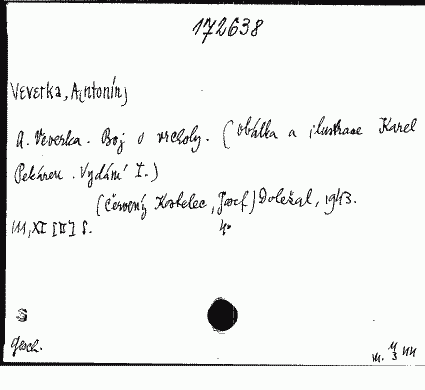 172638
Veverka, A[ntonín]
A. Veverka. Boj o vrcholy. (Obálka a ilustrace Karel
Pekárek. Vydání I.)
(Červený Kostelec, Josef) Doležal, 1943.
111, XI [II] s. 4°
S
Gesch.